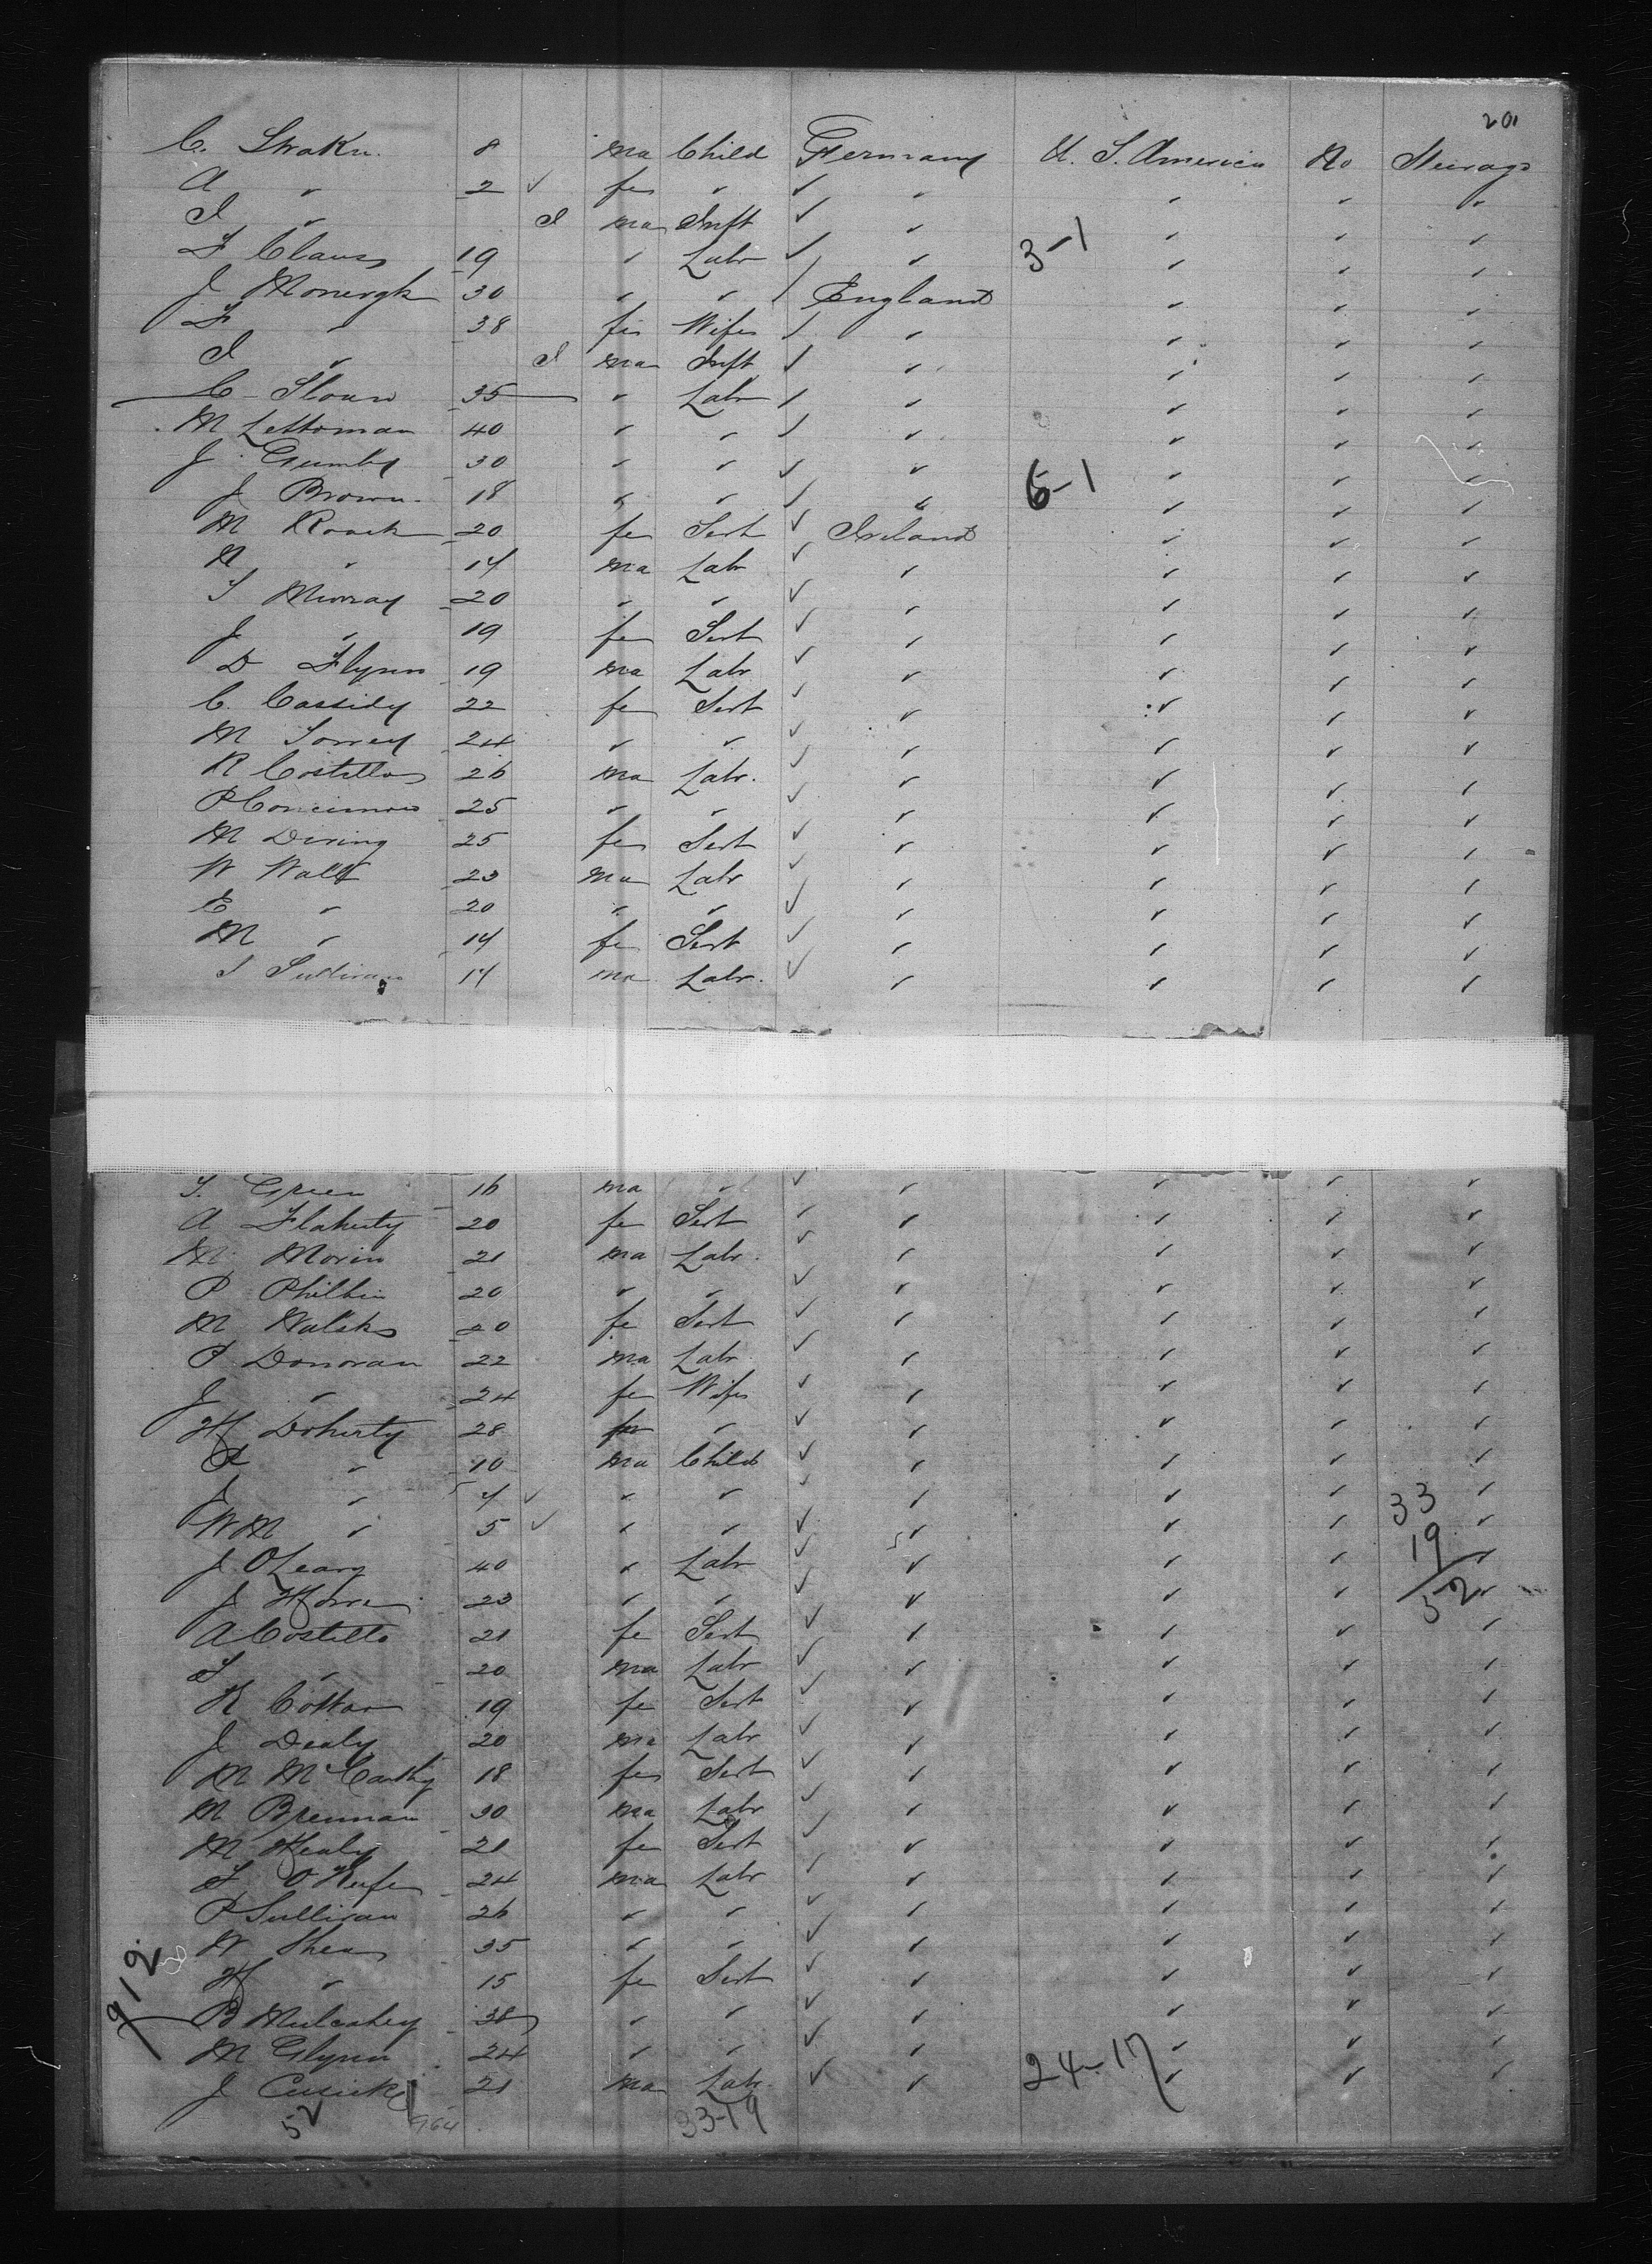 201
C. Straku. 8 ma Child Germany U. S. America No Steerage
A " 2 ✓ fe "
I " I ma Inft
F Claus 19 " Labr 3-1
J Monergh 30 " " England
F " 38 fe Wife
I " I ma Inft
C Sloan 35 " Labr
M Lettoman 40 " "
J Gumby 30 " "
J Brown 18 " " " 6-1
M Roach 20 fe Sert Ireland
N " 14 ma Labr
T Murray 20 " "
J " 19 fe Sert
D Flynn 19 ma Labr
C. Cassidy 22 fe Sert
M 24 " "
R Costello 26 ma Labr.
P 25 " "
M Dining 25 fe Sert
W Wall 23 ma Labr
E " 20 " "
M " 14 fe Sert
J Sullivan 14 ma Labr.
T. Green 16 ma "
A Flaherty 20 fe Sert
M Morin 21 ma Labr.
P Philbin 20 " "
M Walsh 20 fe Sert
P Donovan 22 ma Labr.
J " 24 fe Wife
H Doherty 28 fe "
P " 10 ma Child
J " 7 ✓ " " 33
WM " 5 ✓ " " 19
J OLeary 40 " Labr 52
J Horre 23 " "
A Costello 21 fe Sert
T " 20 ma Labr
K Cottar 19 fe Sert
J Dealy 20 ma Labr
M McCarthy 18 fe Sert
M Brennan 30 ma Labr
M Healy 21 fe Sert
T O Keefe 24 ma Labr
P Sullivan 26 " "
W Shea 35 " "
912
H " 15 fe Sert
B Mulcahey 38 " "
M Glynn 24 " " 24-17
J Cusick 21 ma Labr.
52 964 33-19